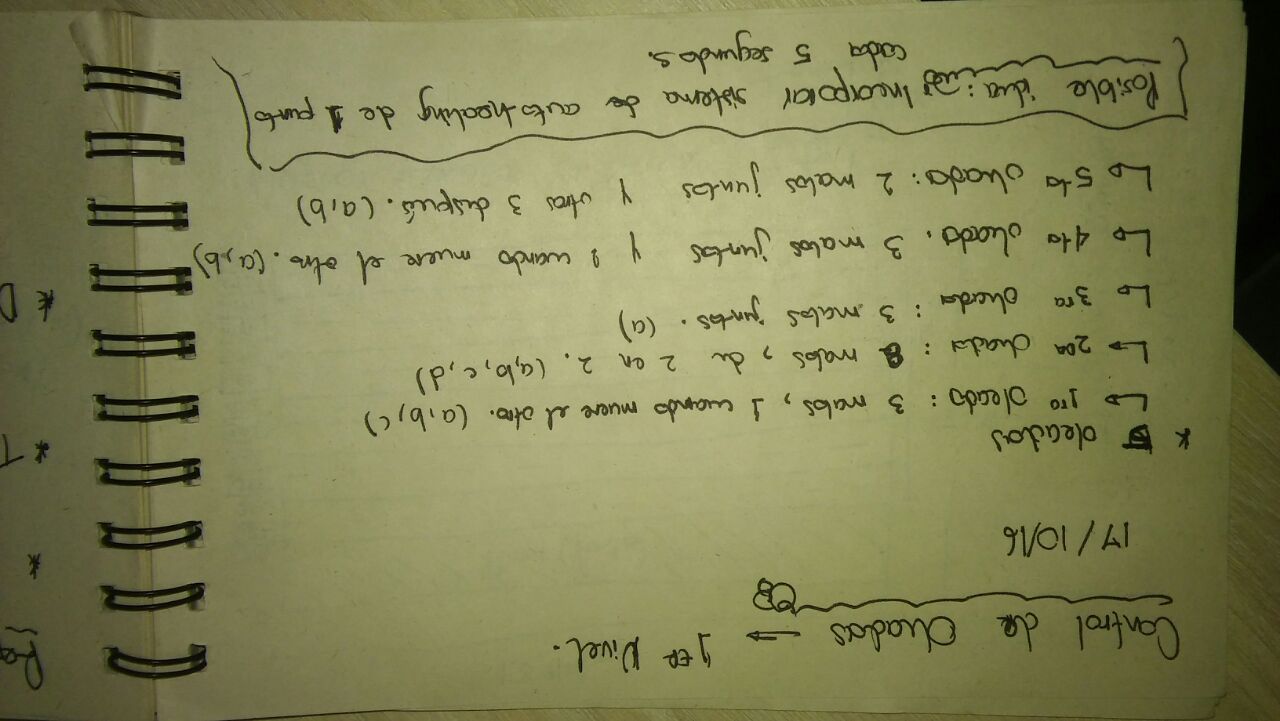 Control de Oleadas → 1er Nivel.
17/10/16
* 5 oleadas
↳ 1ra oleada: 3 malos, 1 cuando muere el otro. (a,b,c)
↳ 2da oleada: malos, de 2 en 2. (a,b,c,d)
↳ 3ra oleada: 3 malos juntos. (a)
↳ 4ta oleada. 3 malos juntos y 1 cuando muere el otro. (a,b)
↳ 5ta oleada: 2 malos juntos y otros 3 después. (a,b)
Posible idea: Incorporar sistema de autohealing de 1 punto
cada 5 segundos.
* D
* T
*